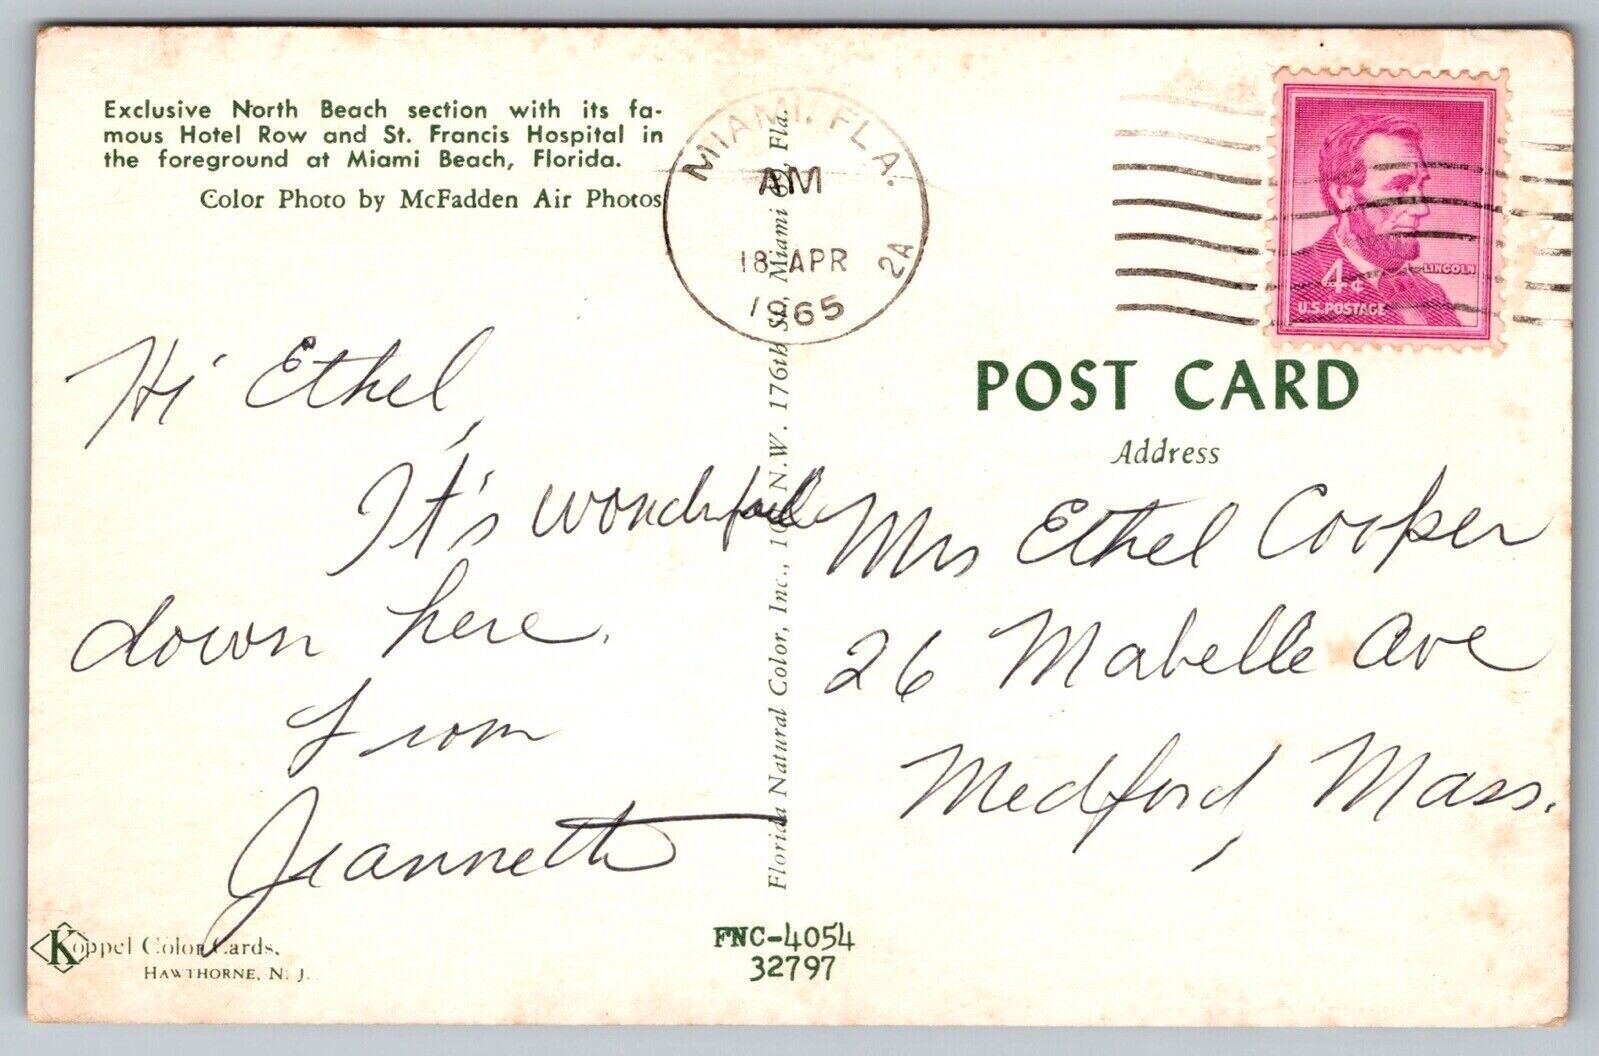 Exclusive North Beach section with its fa-
mous Hotel Row and St. Francis Hospital in
the foreground at Miami Beach, Florida.
Color Photo by McFadden Air Photos
MIAMI, FLA.
AM
18 APR
1965
2A
4¢
LINCOLN
U.S. POSTAGE
Hi Ethel,
It's wonderful
down here.
From
Jeannette
Florida Natural Color, Inc., N.W. 176th St., Miami Fla.
POST CARD
Address
Mrs Ethel Cooper
26 Mabelle Ave
Medford, Mass.
Koppel Color Cards,
HAWTHORNE, N. J.
FNC-4054
32797